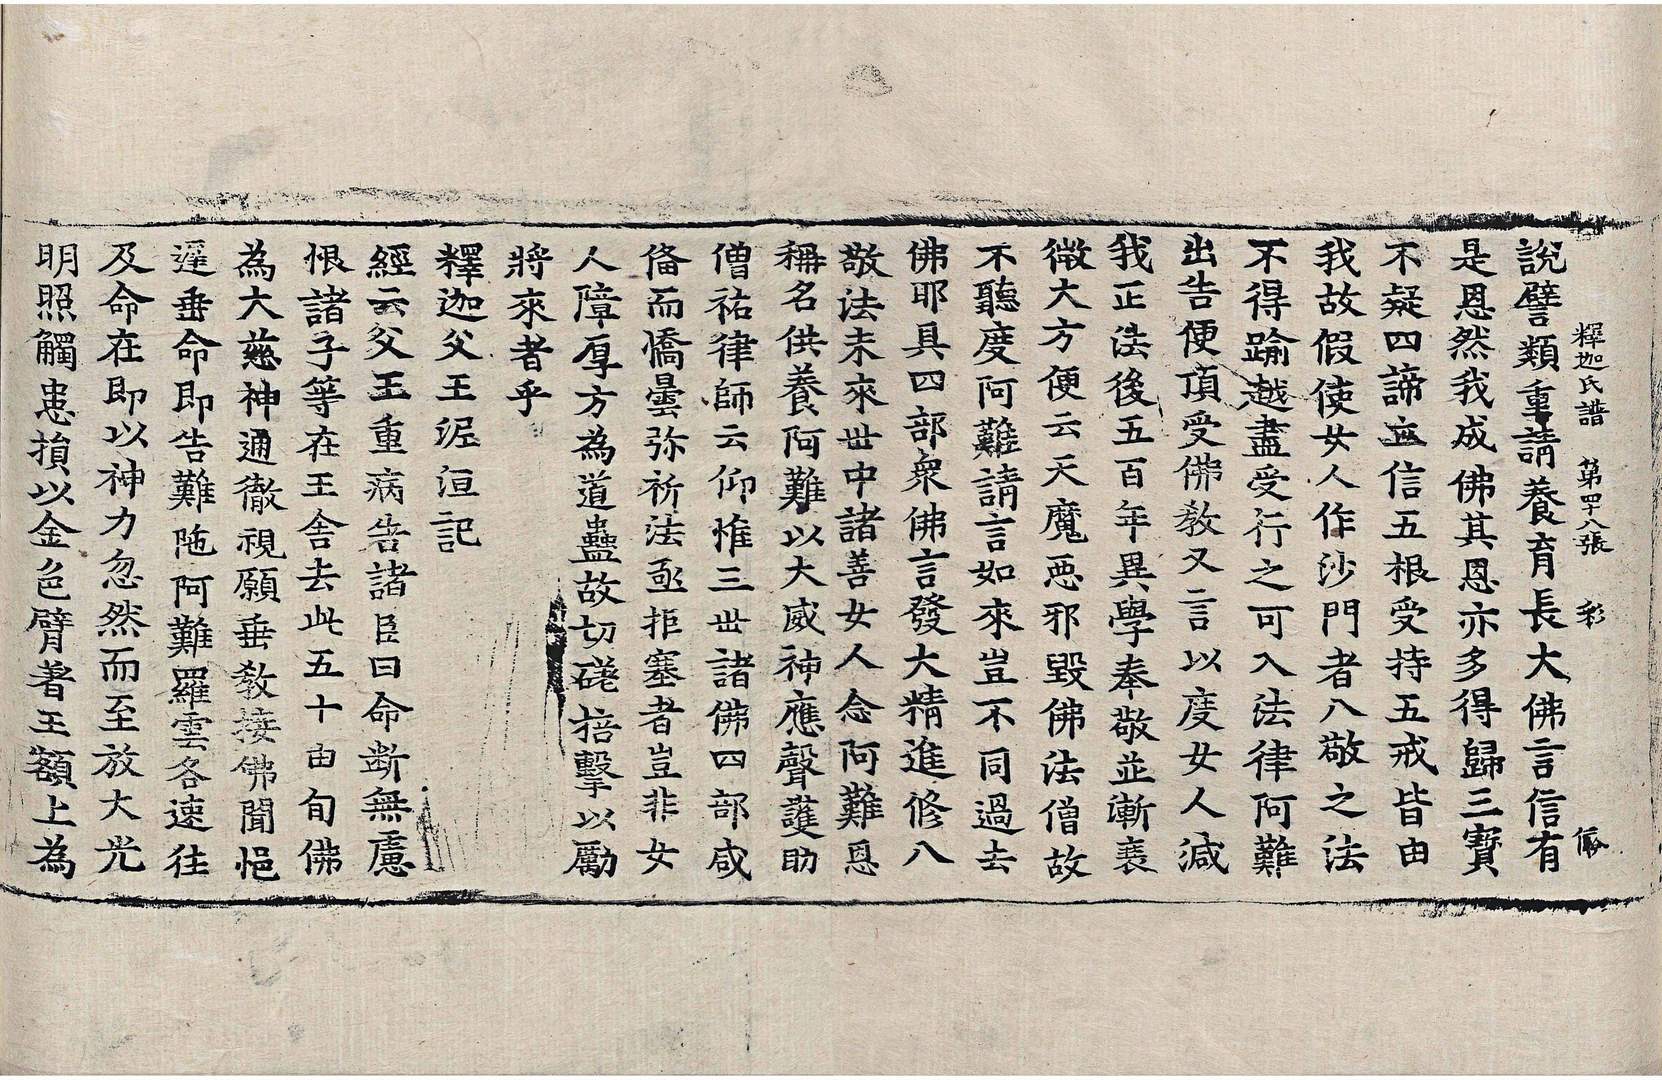 釋迦氏譜 第四十八張 彩
說譬類重請養育長大佛言信有
是恩然我成佛其恩亦多得歸三寶
不疑四諦立信五根受持五戒皆由
我故假使女人作沙門者八敬之法
不得踰越盡受行之可入法律阿難
出告便頂受佛教又言以度女人減
我正法後五百年異學奉敬並漸衰
微大方便云天魔惡邪毀佛法僧故
不聽度阿難請言如來豈不同過去
佛耶具四部衆佛言發大精進修八
敬法未來世中諸善女人念阿難恩
稱名供養阿難以大威神應聲護助
僧祐律師云仰惟三世諸佛四部咸
俻而憍曇弥祈法亟拒塞者豈非女
人障厚方為道蠱故切磋掊擊以勵
將來者乎
釋迦父王泥洹記
經云父王重病告諸臣曰命斷無慮
恨諸子等在王舍去此五十由旬佛
為大慈神通徹視願垂教接佛聞悒
遲垂命即告難陁阿難羅雲各速往
及命在即以神力忽然而至放大光
明照觸患損以金色臂著王額上為